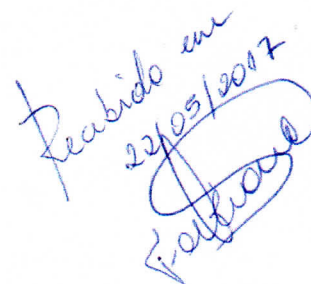 Recebido em
22/05/2017